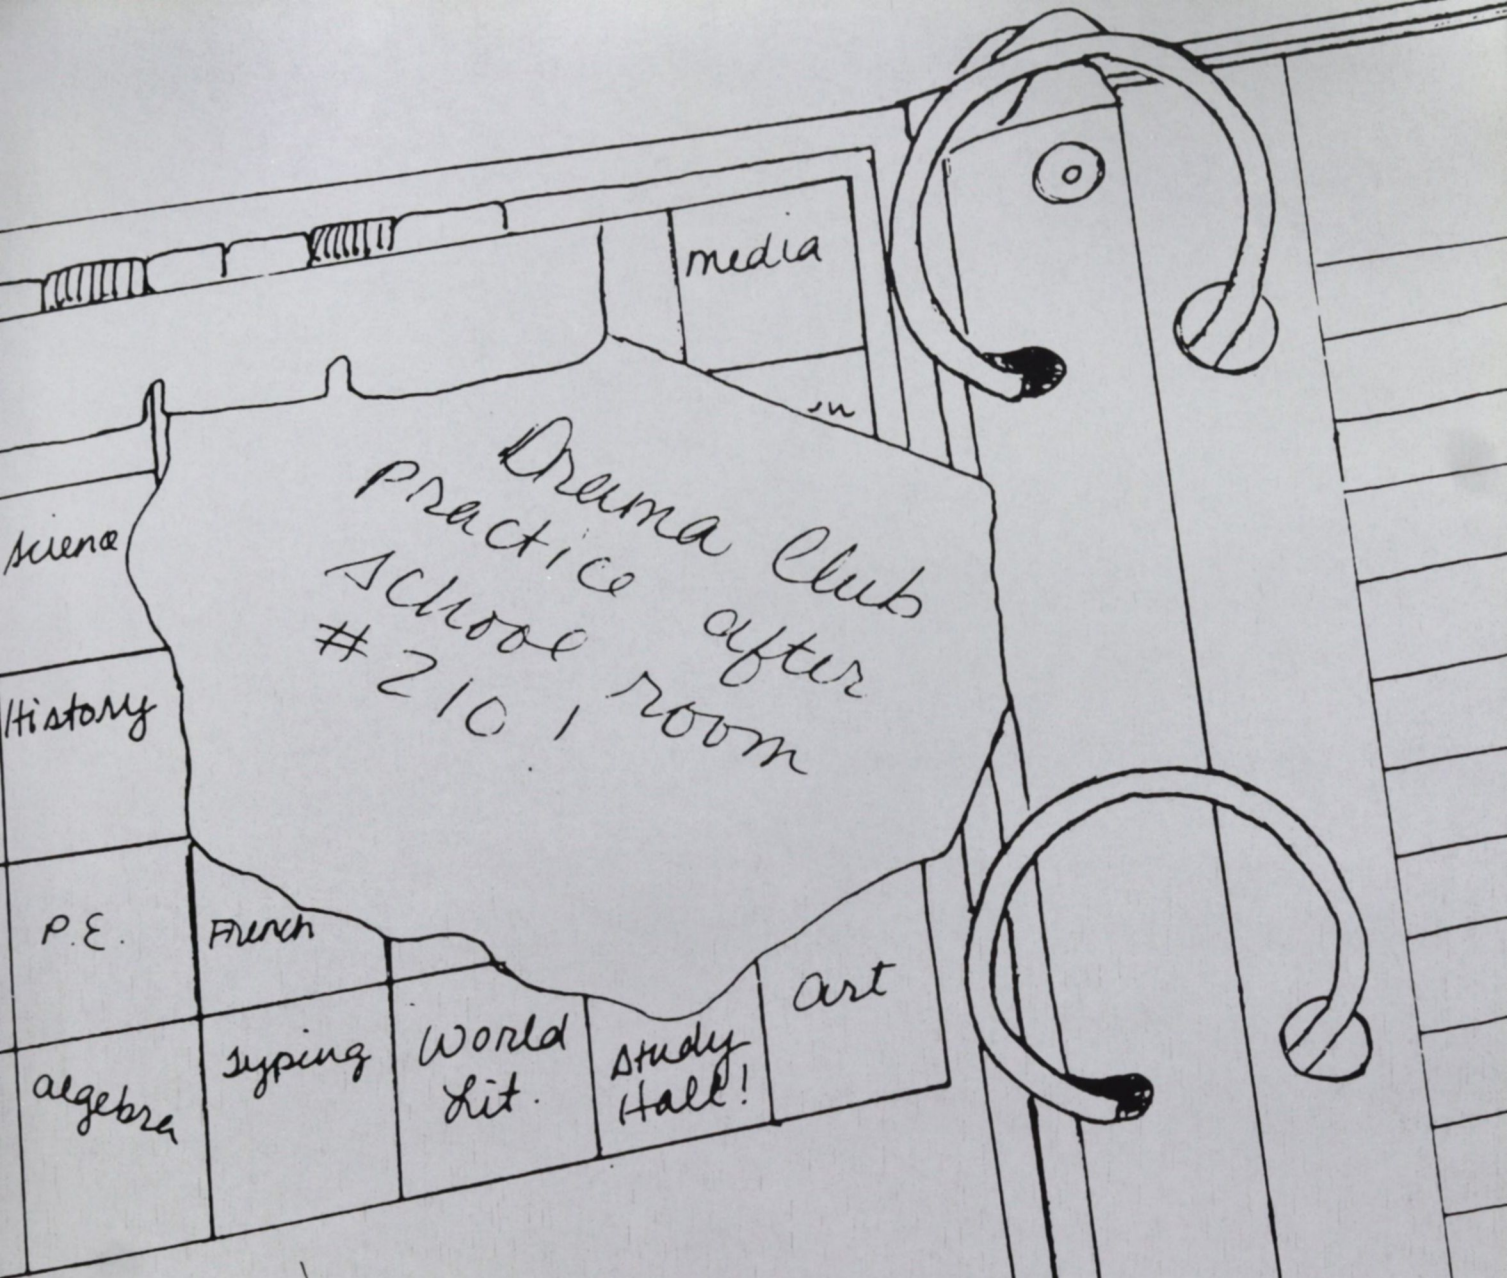 media
Drama Club
practice after
school room
#210!
Science
History
P.E.
French
Art
Algebra
Typing
World
Lit.
Study
Hall!